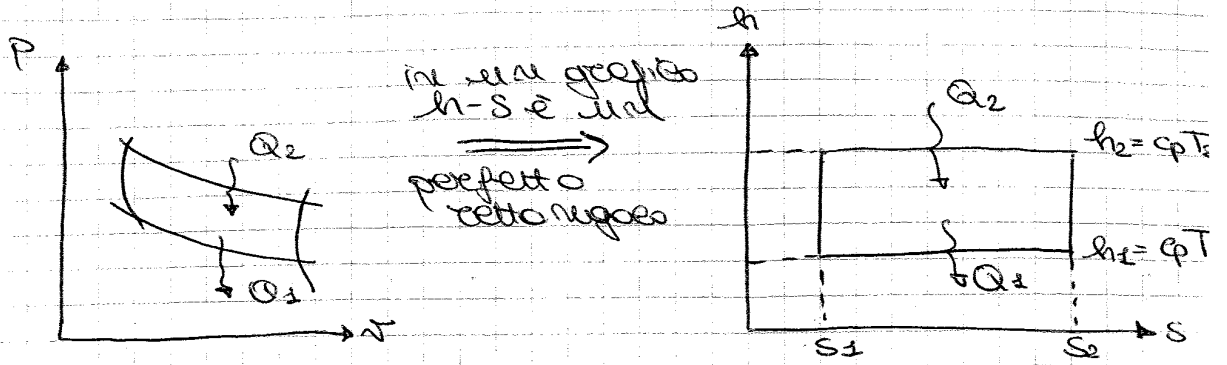 P
Q2
Q1
v
in un grafico
h-S è un
perfetto
rettangolo
h
Q2
h2 = cpT2
h1 = cpT
Q1
S1
S2
S